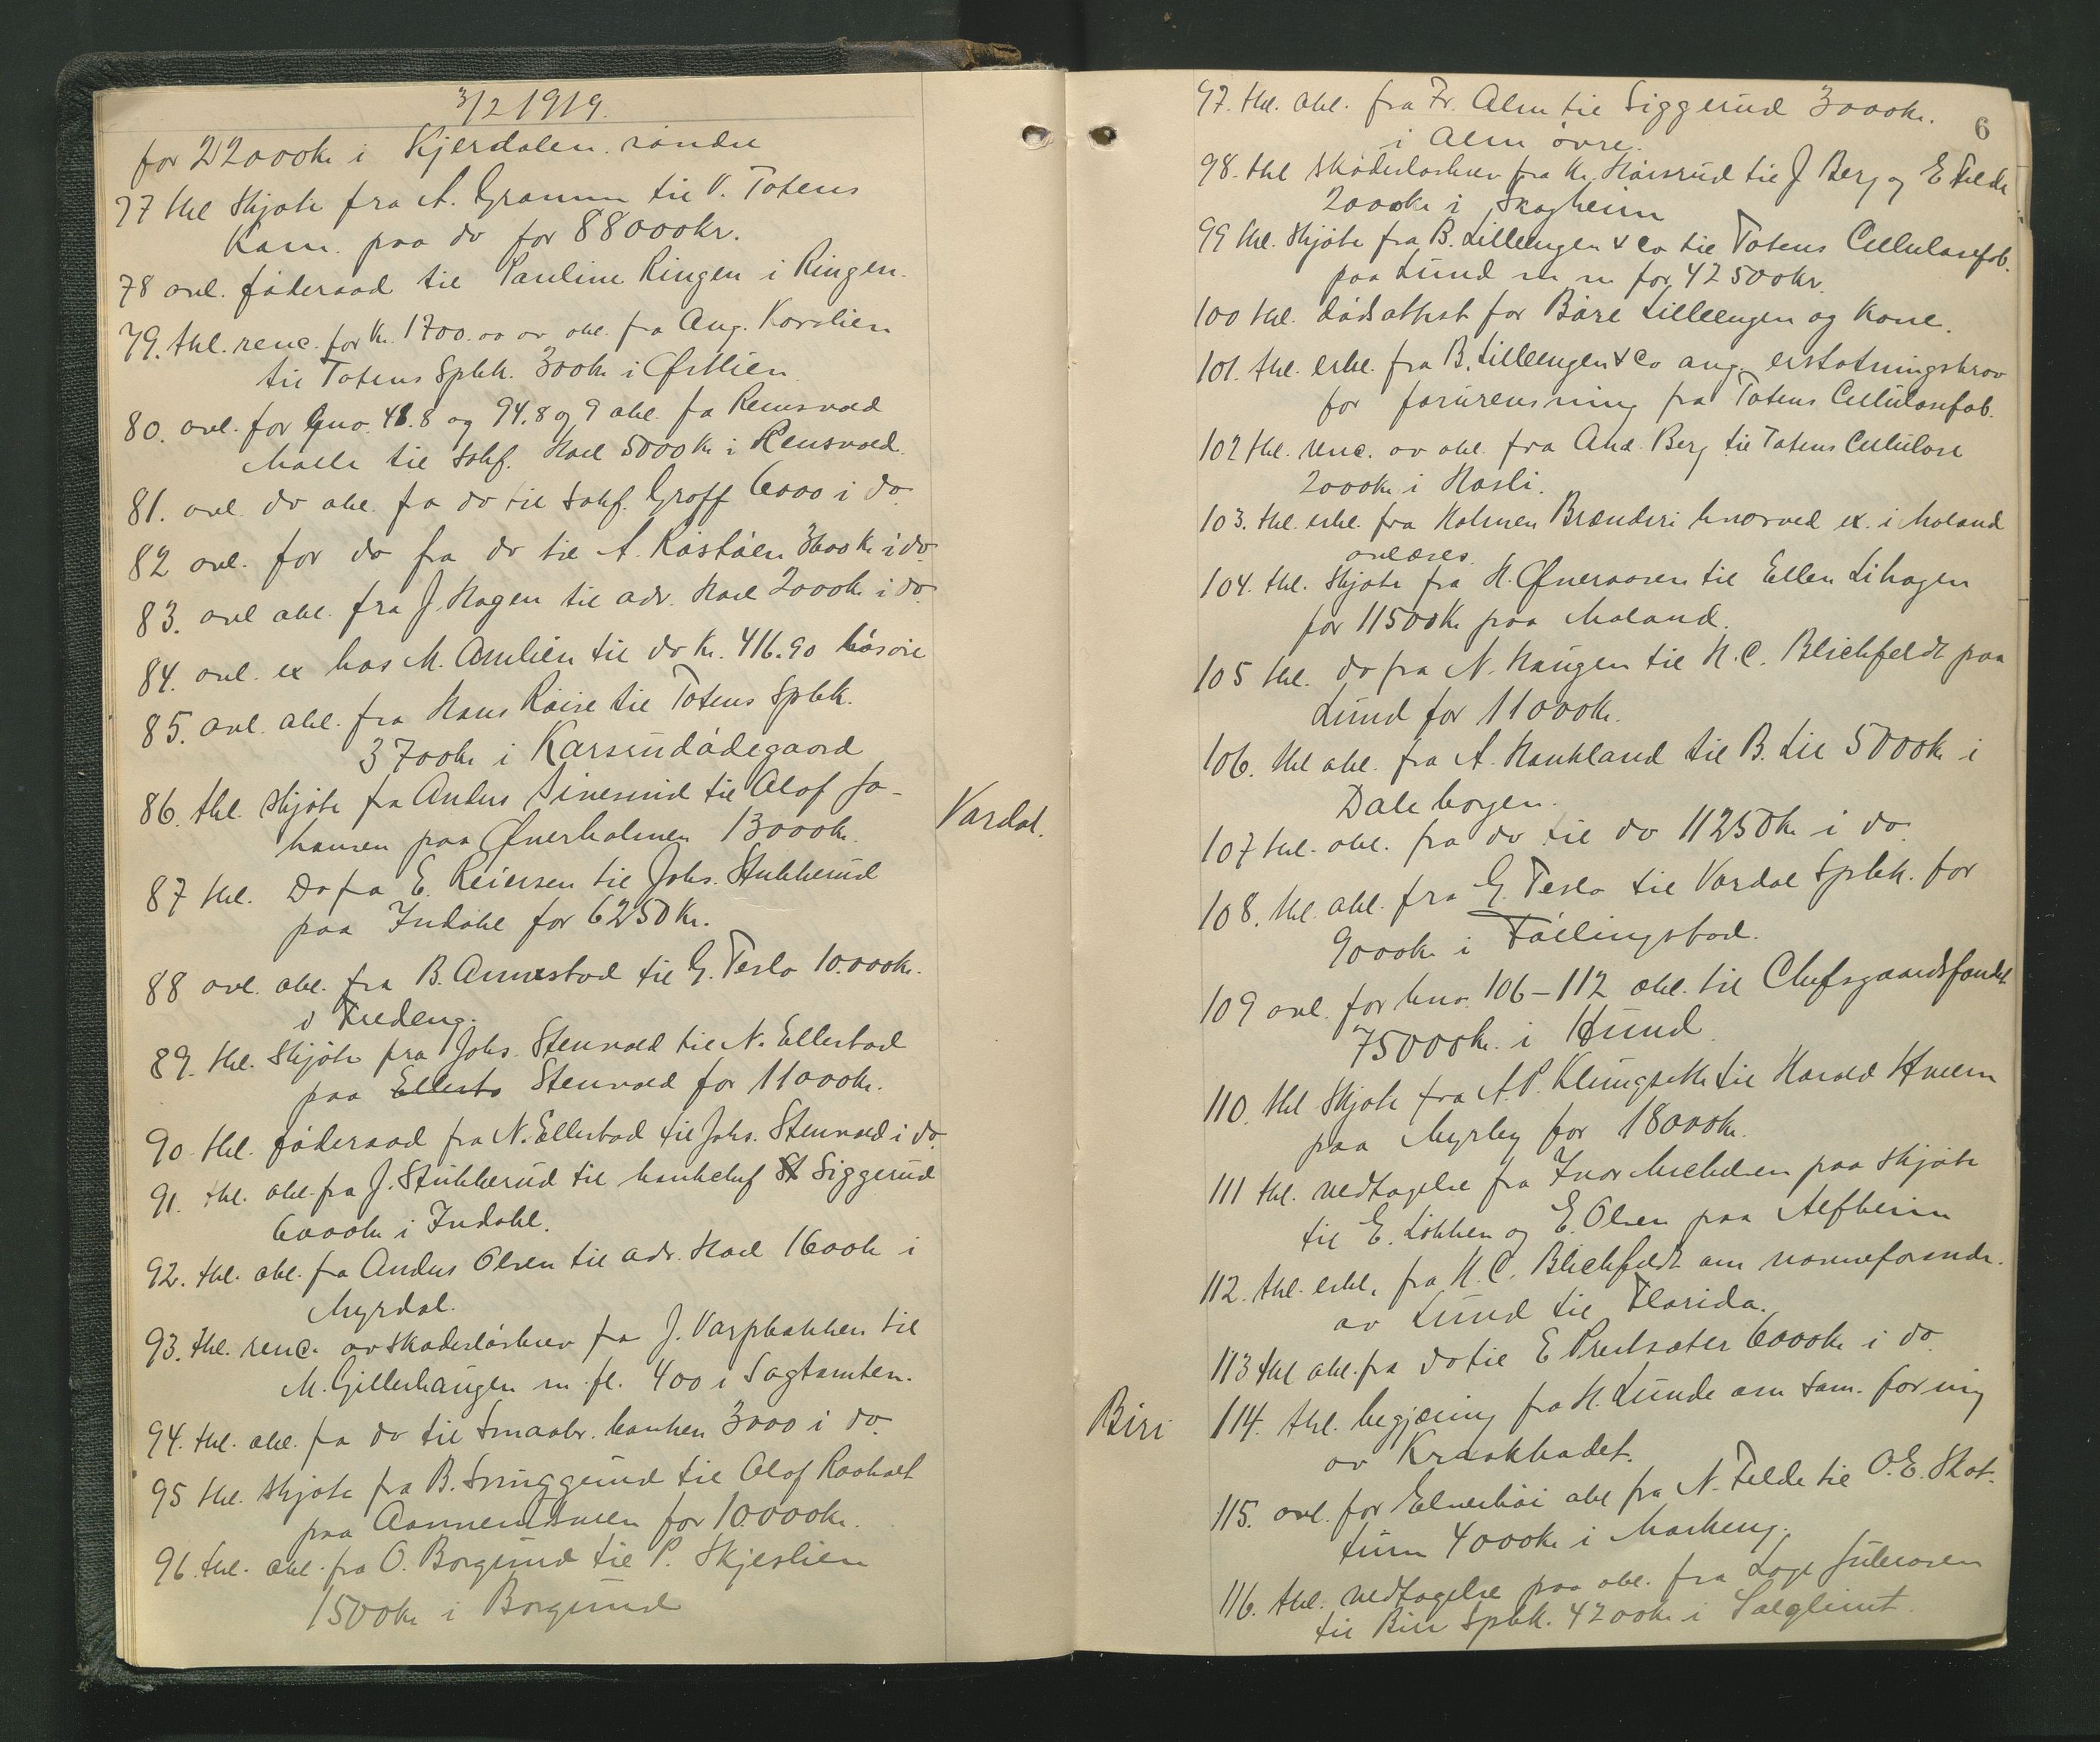 3/2 1919.
for 22000 kr i Kjerdalen søndre
77 thl Skjøte fra A. Gramm til V. Totens
Kom. paa do for 88000 kr.
78 avl. føderaad til Pauline Ringen i Ringen.
79. thl. renc. for kr. 1700.00 av obl. fra Aug.
til Totens Spbk. 300 kr i Østlien
80. avl. for Gno. 48.8 og 94.8 og 9 obl. fa Rensvold
til sakf. Hoel 5000 kr i Rensvold.
81. avl. do obl. fa do til sakf. Groff 6000 i do
82 avl. for do fra do til A. Røstøen 3600 kr i do
83. avl obl. fra J. Hagen til adv. Hoel 2000 kr i do.
84. avl. ex hos M. Amlien til do kr. 416.90 løsøre
85. avl. obl. fra Hans Røise til Totens Spbk.
3700 kr i Karsrudødegaard
86. thl. skjøte fra Anders Sinerud til Olof Jo-
hansen paa Øverholmen 13000 kr.
Vardal.
87 thl. Do fra E. Reiersen til Johs. Stubberud
paa Indahl for 6250 kr.
88 avl. obl. fra B. Annexstad til G. Teslo 10.000 kr.
i
89. thl. Skjøte fra Johs. Stenvold til N. Ellestad
paa Ellesta Stenvold for 11000 kr.
90. thl. føderaad fra N. Ellestad til Johs. Stenvold i do
91. thl. obl. fra J. Stubberud til bankchef St Siggerud
6000 kr i Indahl.
92. thl. obl. fra Anders Olsen til adv. Hoel 1600 kr i
Myrdal.
93. thl. renc. av skadesløsbrev fra J. Varpbakken til
M. Gillerhaugen m. fl. 400 i Sagtomten.
94. thl. obl. fa do til Smaabr. banken 3000 i do
95 thl. skjøte fra B. Snuggerud til Olof Raaholt
paa for 10.000 kr.
96. thl. obl. fra O. Borgund til P. Skjeslien
1500 kr i Borgund
6
97. thl. obl. fra Fr. Alm til Siggerud 3000 kr.
i Alm øvre.
98. thl skadesløsbrev fra Kr. Hørsrud til J Berg og E Felde
2000 kr i Skogheim
99 thl. Skjøte fra B. Lilleengen & Co til Totens Cellulosefab.
paa Lund m m for 42500 kr.
100 thl. dødsattest for Børe Lilleengen og Kone.
101. thl. erkl. fra B. Lilleengen & Co ang. erstatningskrav
for forurensning fra Totens Cellulosefab.
102 thl. renc. av obl. fra And. Berg til Totens Cellulose
2000 kr i Hasli.
103. thl. erkl. fra Holmen Brænderi hvorved ex. i Moland
avlæses.
104. thl. Skjøte fra H. Øveraasen til Ellen Lihagen
for 11500 kr paa Moland.
105 thl. do fra N. Haugen til H. C. Blichfeldt paa
Lund for 11000 kr.
106. thl obl. fra A. Haukland til B. Lie 5000 kr i
Daleborgen.
107 thl. obl. fra do til do 11250 kr i do
108. thl. obl. fra G. Teslo til Vardal Spbk. for
9000 kr i Føllingstad.
109 avl. for bno. 106-112 obl. til Chefsgaardsfondet
75000 kr. i Hund.
110. thl Skjøte fra A. P. Klungseth til Harald Hveem
paa Myrby for 18000 kr.
111 thl. vedtagelse fra Ivar Michelsen paa skjøte
til E. Løkken og E. Olsen paa Alfheim
112. thl. erkl. fra H. C. Blichfeldt om navneforandr.
av Lund til Florida.
113 thl obl. fra do til E Prestsæter 6000 kr i do
Biri
114. thl. begjæring fra H. Lunde om sam. føining
av Kraakbadet.
115. avl. for Elvehøi obl fra N. Felde til O. E. Skat-
tum 4000 kr i Markeng.
116. thl. vedtagelse paa obl. fra Lage Juleraasen
til Biri Spbk. 4200 kr i Solglimt.